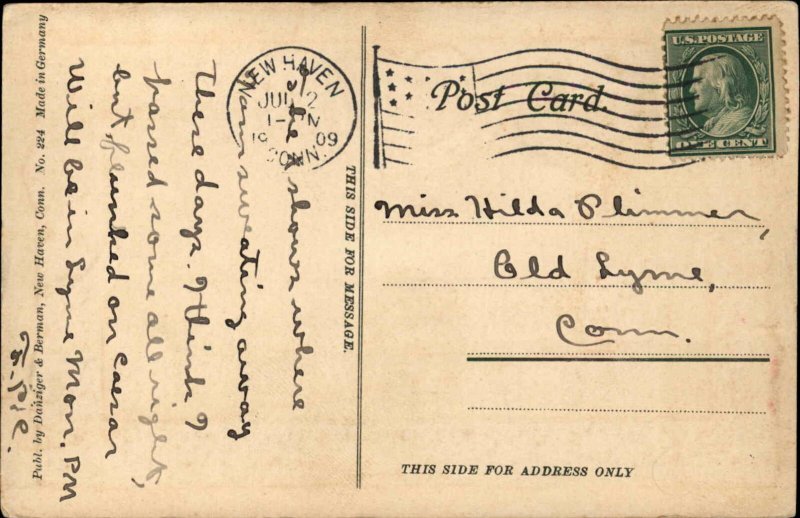 Publ. by Danziger & Berman, New Haven, Conn. No. 224 Made in Germany
THIS SIDE FOR MESSAGE.
shows where
I am sweating away
these days. I think I
passed some all right,
but flunked on Caesar
Will be in Lyme Mon. PM
NEW HAVEN
JUL 2
1909
CONN.
Post Card.
U.S. POSTAGE
ONE CENT
Miss Hilda Plimmer,
Old Lyme,
Conn.
THIS SIDE FOR ADDRESS ONLY